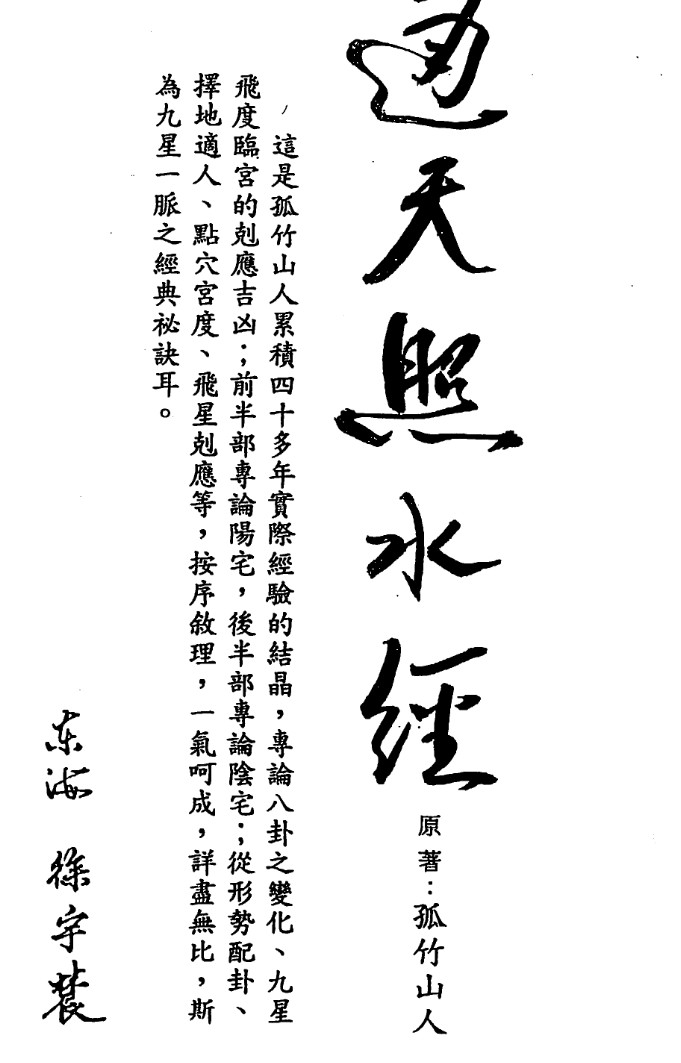 通天照水經
原著：孤竹山人
這是孤竹山人累積四十多年實際經驗的結晶，專論八卦之變化、九星
飛度臨宮的剋應吉凶；前半部專論陽宅，後半部專論陰宅；從形勢配卦、
擇地適人、點穴宮度、飛星剋應等，按序敘理，一氣呵成，詳盡無比，斯
為九星一脈之經典祕訣耳。
东海 徐宇辳